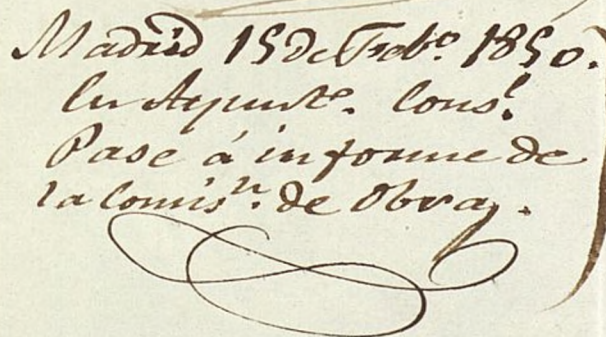 Madrid 15 de Feb.º 1850.
En Ayunt.º Cons.l
Pase á informe de
la Comis.n de Obras.